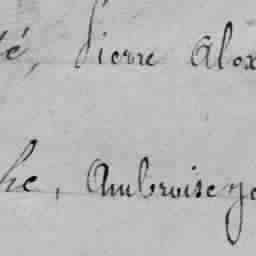 é, Pierre Alex
he, Ambroise